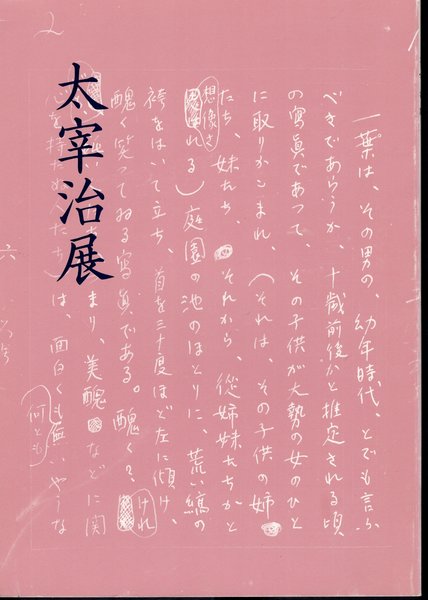 2
一葉は、その男の、幼年時代、とでも言ふ
べきであらうか、十歳前後かと推定される頃
の寫眞であつて、その子供が大勢の女のひと
に取りかこまれ、(それは、その子供の姉
たち、妹たち それから、從姉妹たちかと
想像される)庭園の池のほとりに、荒い縞の
袴をはいて立ち、首を三十度ほど左に傾け、
醜く笑つてゐる寫眞である。醜く?けれ
まり、美醜などに関
心を持たぬ人たち)は、面白くも何とも無いやうな
太宰治展